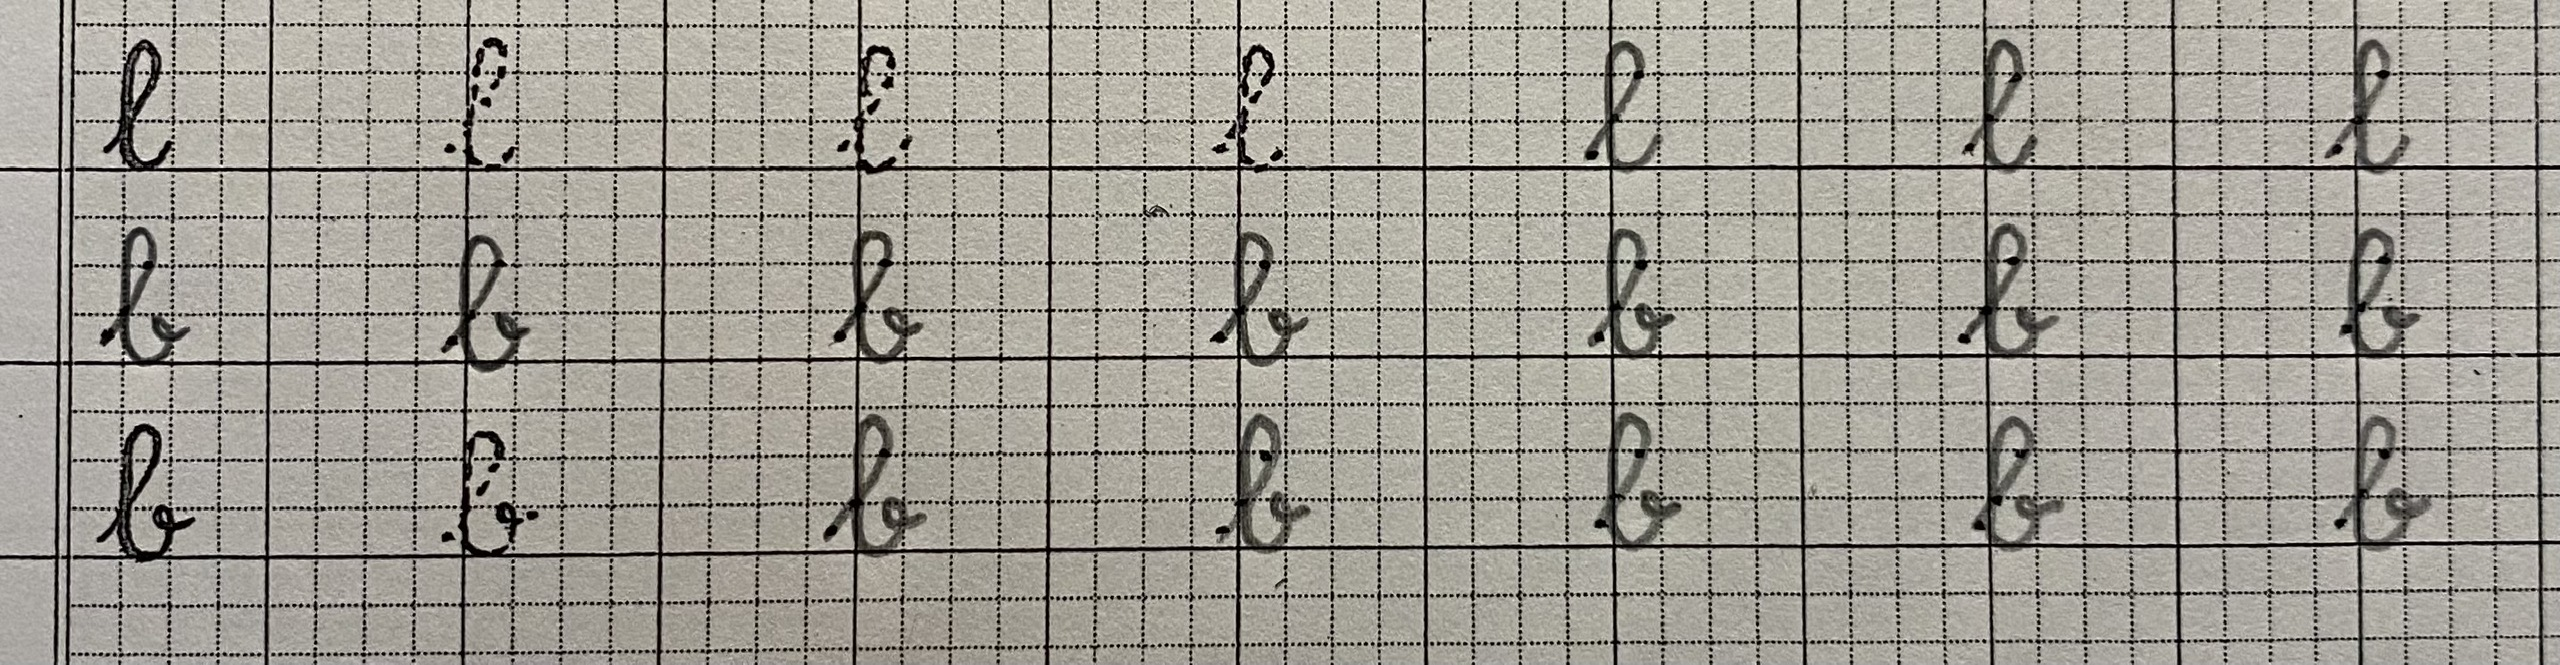 l l l l l l l
b b b b b b b
b b b b b b b